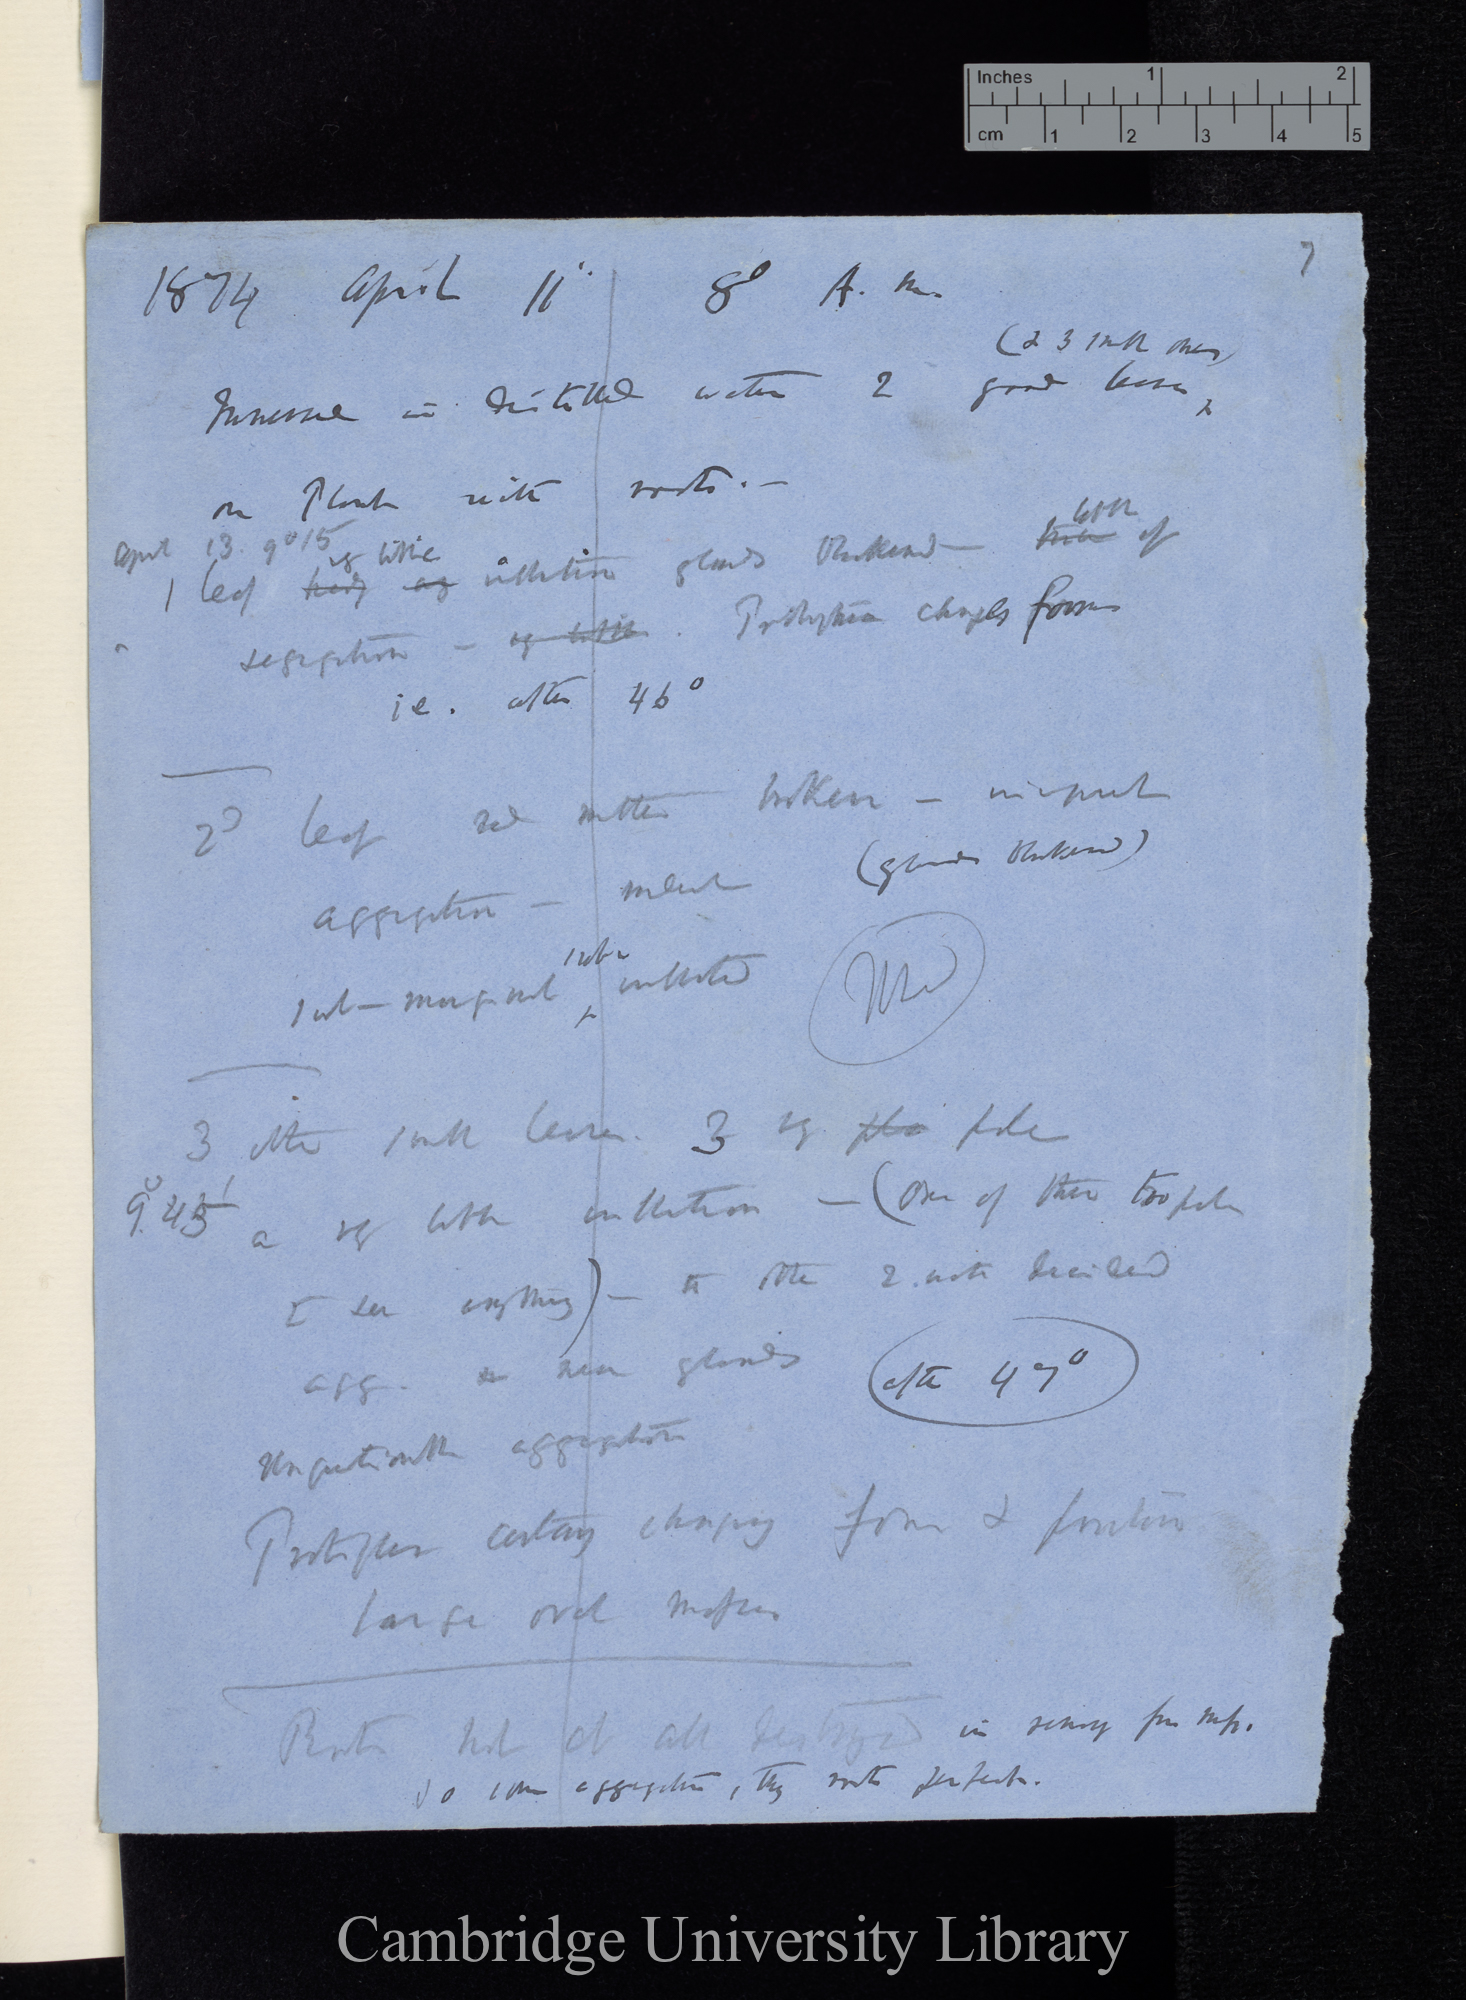 Inches 1 2
cm 1 2 3 4 5
7
1874 April 11 8° A.m.
(& 3 small ones)
Immersed in distilled water 2 good leaves
on Plant with roots. —
April 13. 9° 15'
vg little little
1 leaf inflection glands blackened — of
segregation — vg little. Protoplasm changes forms
i.e. after 46°
2d leaf red matter broken — incipient
aggregation — (glands blackened)
sub-marginal inflected
3 other small leaves. 3 vg pale
9° 45' a vg little inflection — (One of them too pale
I see anything) — the other 2 with decided
agg. near glands (after 47°)
Unquestionable aggregation
Protoplasm certainly changing form & position
large oval masses
Roots not at all destroyed in removing from
so some aggregation, tho roots perfect.
Cambridge University Library